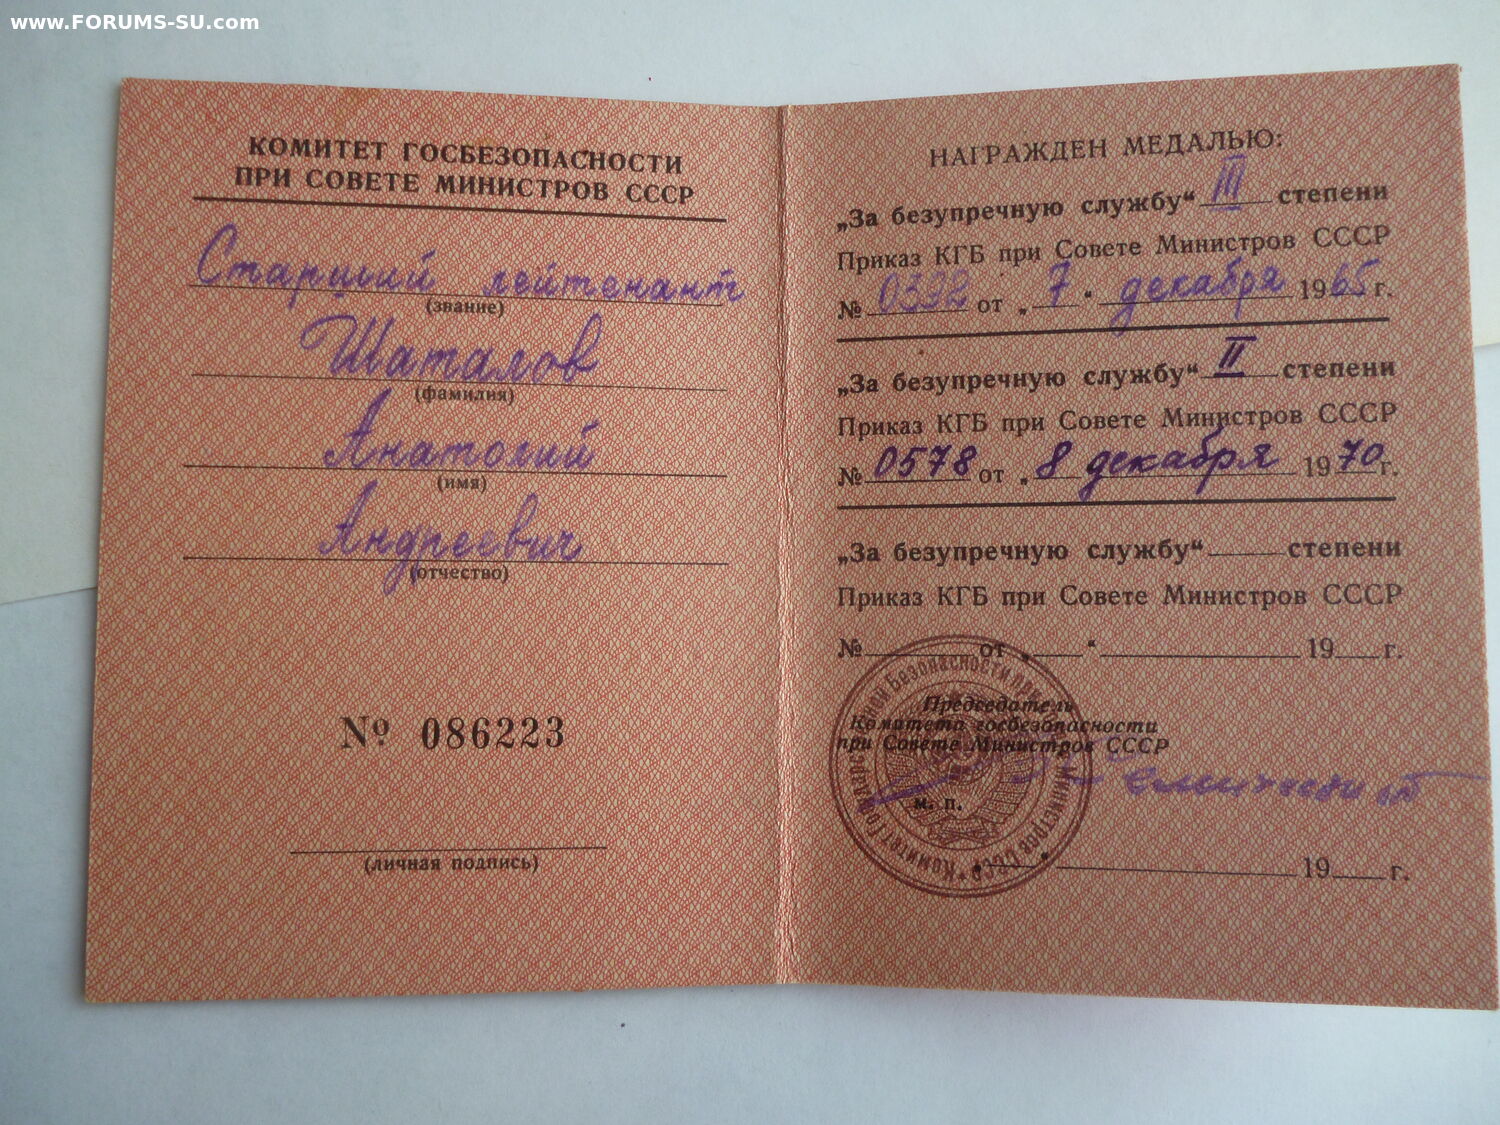 www.FORUMS-SU.com
КОМИТЕТ ГОСБЕЗОПАСНОСТИ
ПРИ СОВЕТЕ МИНИСТРОВ СССР
Старший лейтенант
(звание)
Шаталов
(фамилия)
Анатолий
(имя)
Андреевич
(отчество)
№ 086223
(личная подпись)
НАГРАЖДЕН МЕДАЛЬЮ:
„За безупречную службу“ III степени
Приказ КГБ при Совете Министров СССР
№ 0392 от „7“ декабря 1965 г.
„За безупречную службу“ II степени
Приказ КГБ при Совете Министров СССР
№ 0578 от „8 декабря 1970 г.
„За безупречную службу“ степени
Приказ КГБ при Совете Министров СССР
№ от „ “ 19 г.
Председатель
Комитета госбезопасности
при Совете Министров СССР
м. п.
„ “ 19 г.
Комитет Государственной Безопасности при Совете Министров СССР